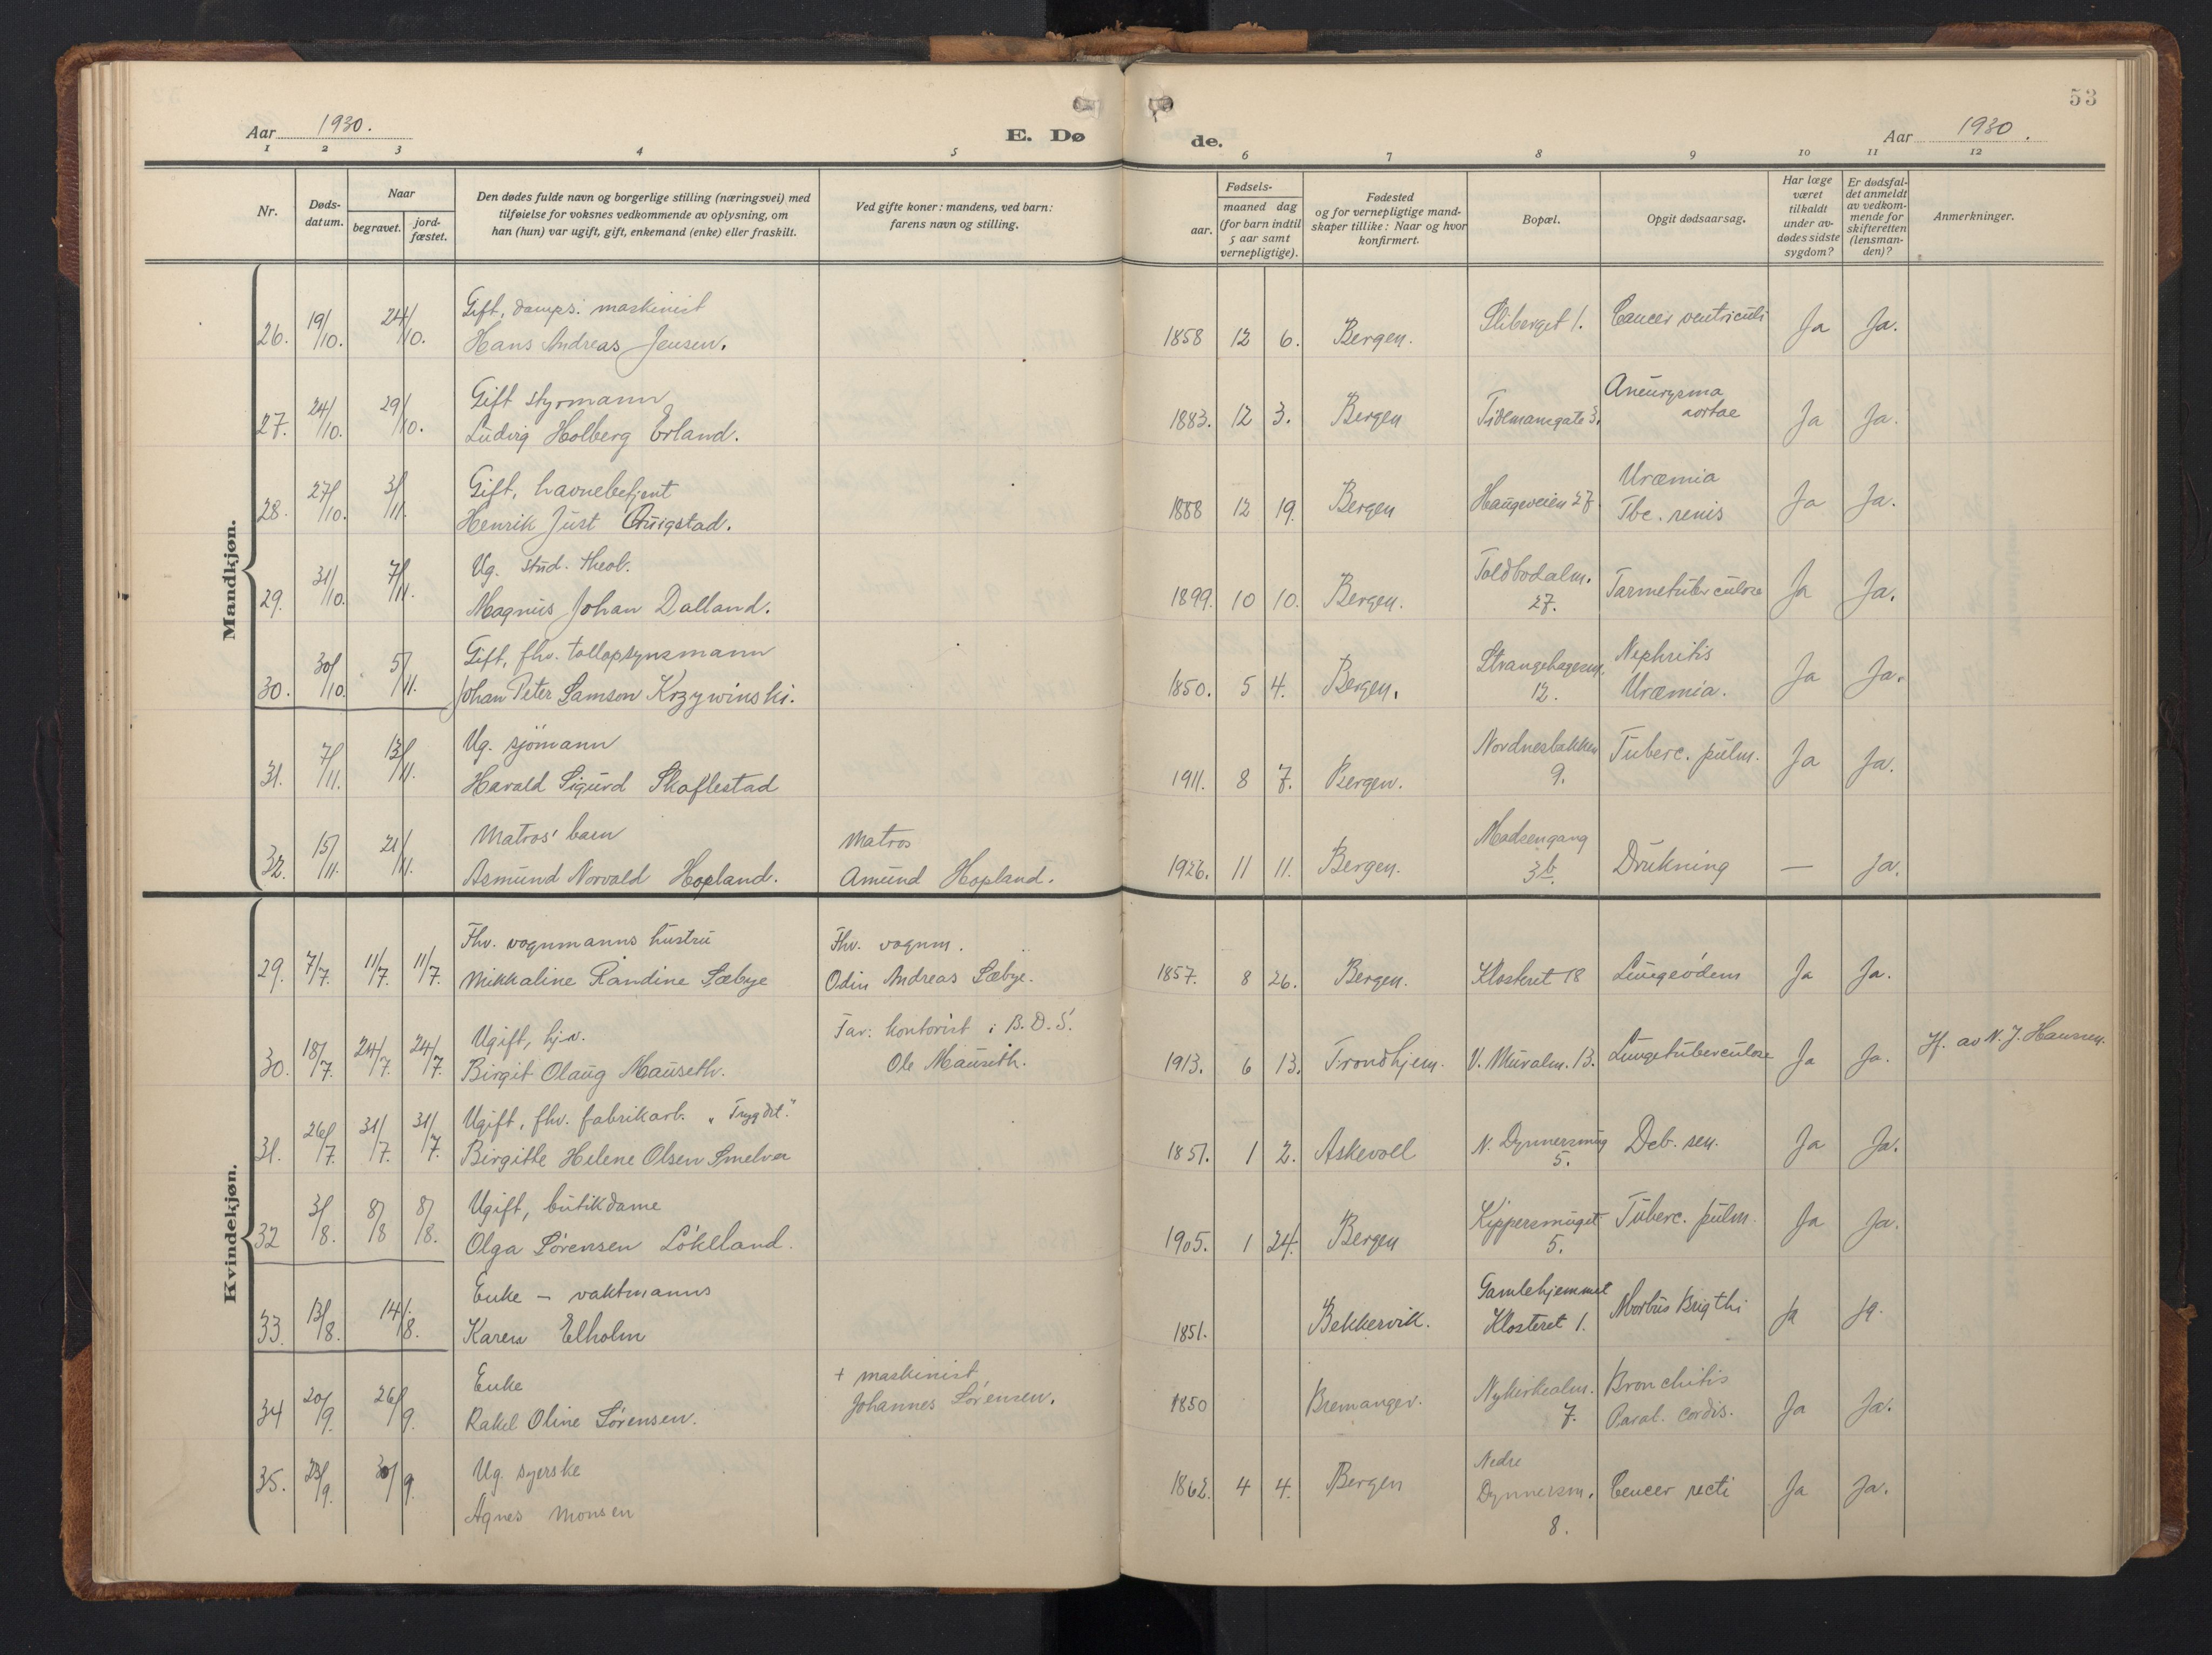 53
Aar 1930.
E. Døde.
Aar 1930.
1 2 3 4 5 6 7 8 9 10 11 12
Nr.
Dødsdatum.
Naar
begravet.
jordfæstet.
Den dødes fulde navn og borgerlige stilling (næringsvei) med
tilføielse for voksnes vedkommende av oplysning, om
han (hun) var ugift, gift, enkemand (enke) eller fraskilt.
Ved gifte koner: mandens, ved barn:
farens navn og stilling.
Fødsels-
aar.
maaned dag
(for barn indtil
5 aar samt
vernepligtige).
Fødested
og for vernepligtige mand-
skaper tillike: Naar og hvor
konfirmert.
Bopæl.
Opgit dødsaarsag.
Har læge
været
tilkaldt
under av-
dødes sidste
sygdom?
Er dødsfal-
det anmeldt
av vedkom-
mende for
skifteretten
(lensman-
den)?
Anmerkninger.
Mandkjøn.
26. 19/10. 24/10. Gift, damps. maskinist
Hans Andreas Jensen. 1858 12 6. Bergen. Sliberget 1. Cancer ventriculi Ja Ja.
27. 24/10. 29/10. Gift styrmann
Ludvig Holberg Erland. 1883. 12 3. Bergen Tidemansgate 3. Aneurysma
aortae Ja Ja.
28. 27/10. 3/11. Gift, havnebetjent
Henrik Just Quigstad. 1888 12 19. Bergen Haugeveien 27. Uræmia
Tbc. renis Ja Ja.
29. 31/10. 7/11. Ug. stud. theol.
Magnus Johan Dalland. 1899. 10 10. Bergen. Toldbodalm.
27. Tarmetuberculose Ja Ja.
30. 30/10. 5/11. Gift, fhv. tollopsynsmann
Johan Peter Samson Krzywinski. 1850. 5 4. Bergen. Strangehagen
12. Nephritis
Uræmia. Ja Ja.
31. 7/11. 13/11. Ug. sjömann
Harald Sigurd Skaflestad 1911. 8 7. Bergen. Nordnesbakken
9. Tuberc. pulm. Ja Ja.
32. 15/11. 21/11. Matros' barn
Asmund Norvald Hopland. Matros
Amund Hopland. 1926. 11 11. Bergen. Madsengang
3b. Drukning — Ja.
Kvindekjøn.
29. 7/7. 11/7. 11/7. Fhv. vognmanns hustru
Mikkaline Randine Sæbye Fhv. vognm.
Odin Andreas Sæbye. 1857. 8 26. Bergen. Klosteret 18 Lungeödem Ja Ja.
30. 18/7. 24/7. 24/7. Ugift, hj.v.
Birgit Olaug Mauseth. Far: kontorist i B.D.S.
Ole Mauseth. 1913. 6 13. Trondhjem. V. Muralm. 13. Lungetuberculose Ja Ja. Jf. av N. J. Hansen.
31. 26/7. 31/7. 31/7. Ugift, fhv. fabrikarb. "Trygdet."
Birgitte Helene Olsen Smelver 1851. 1 2. Askevoll N. Dynnersmug
5. Deb. sen. Ja Ja.
32 3/8. 8/8 8/8. Ugift, butikdame
Olga Sörensen Lökeland. 1905. 1 24. Bergen Kippersmuget
5. Tuberc. pulm. Ja Ja.
33. 13/8. 14/8. Enke – vaktmanns
Karen Elholm 1851. Bekkervik. Gamlehjemmet
Klosteret 1. Morbus Brigthi Ja Ja.
34 20/9. 26/9. Enke
Rakel Oline Sörensen. + maskinist
Johannes Sörensen. 1850 Bremanger. Nykirkealm.
7. Bronchitis
Paral. cordis. Ja Ja.
35. 23/9. 30/9. Ug. syerske
Agnes Monsen 1862. 4 4. Bergen Nedre
Dynnersm.
8. Cancer recti Ja Ja.